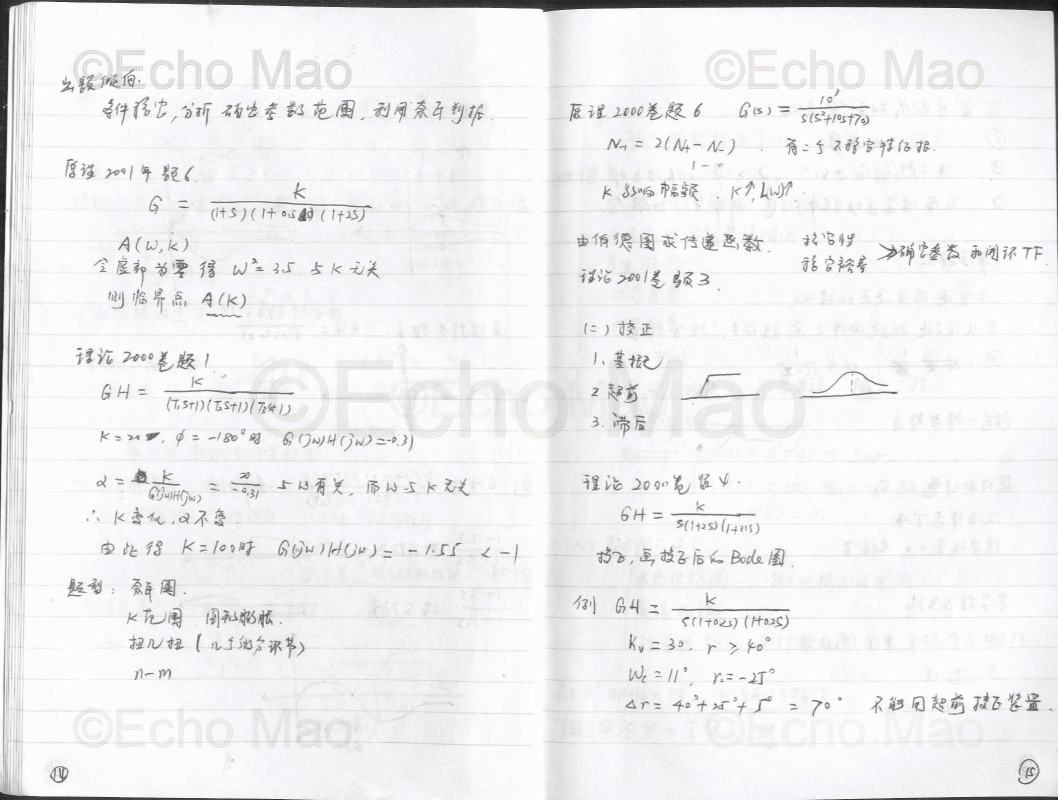 ©Echo Mao
出题倾向.
条件稳定,分析 确定参数范围, 利用奈氏判据.
原理 2001年 题6.
G = K / (1+s)(1+0.5s)(1+2s)
A(ω,K)
令虚部为零 得 ω²=3.5 与K无关
则临界点 A(K)
理论 2000卷题1
GH = K / (T₁s+1)(T₂s+1)(T₃s+1)
K=20时, φ=-180°时 G(jω)H(jω)=-0.31
α = K / G(jω)H(jω) = 20 / -0.31 与ω有关, 而ω与K无关
∴ K变化, α不变
由此得 K=100时 G(jω)H(jω)=-1.55 < -1
题型: 奈氏图.
K范围 图形膨胀.
扭几扭 (几个微分环节)
n-m
©Echo Mao
14
©Echo Mao
原理 2000卷题6 G(s) = 10³ / s(s²+10s+70)
N₁ = 2(N₊-N₋) . 有二个不稳定特征根.
K影响幅频 K↑, L(ω)↑
由伯德图求传递函数. 稳定性
稳定裕量 → 确定参数 和闭环TF.
理论 2001卷题3.
(二) 校正
1. 基概
2. 超前
3. 滞后
©Echo Mao
理论 2000卷题4.
GH = K / s(1+2s)(1+21s)
校正, 画校正后的Bode图.
例 GH = K / s(1+0.2s)(1+0.2s)
Kv=30, r≥40°
Wc=11°, r₀=-25°
Δr=40°+25°+5°=70° 不能用超前校正装置.
©Echo Mao
15